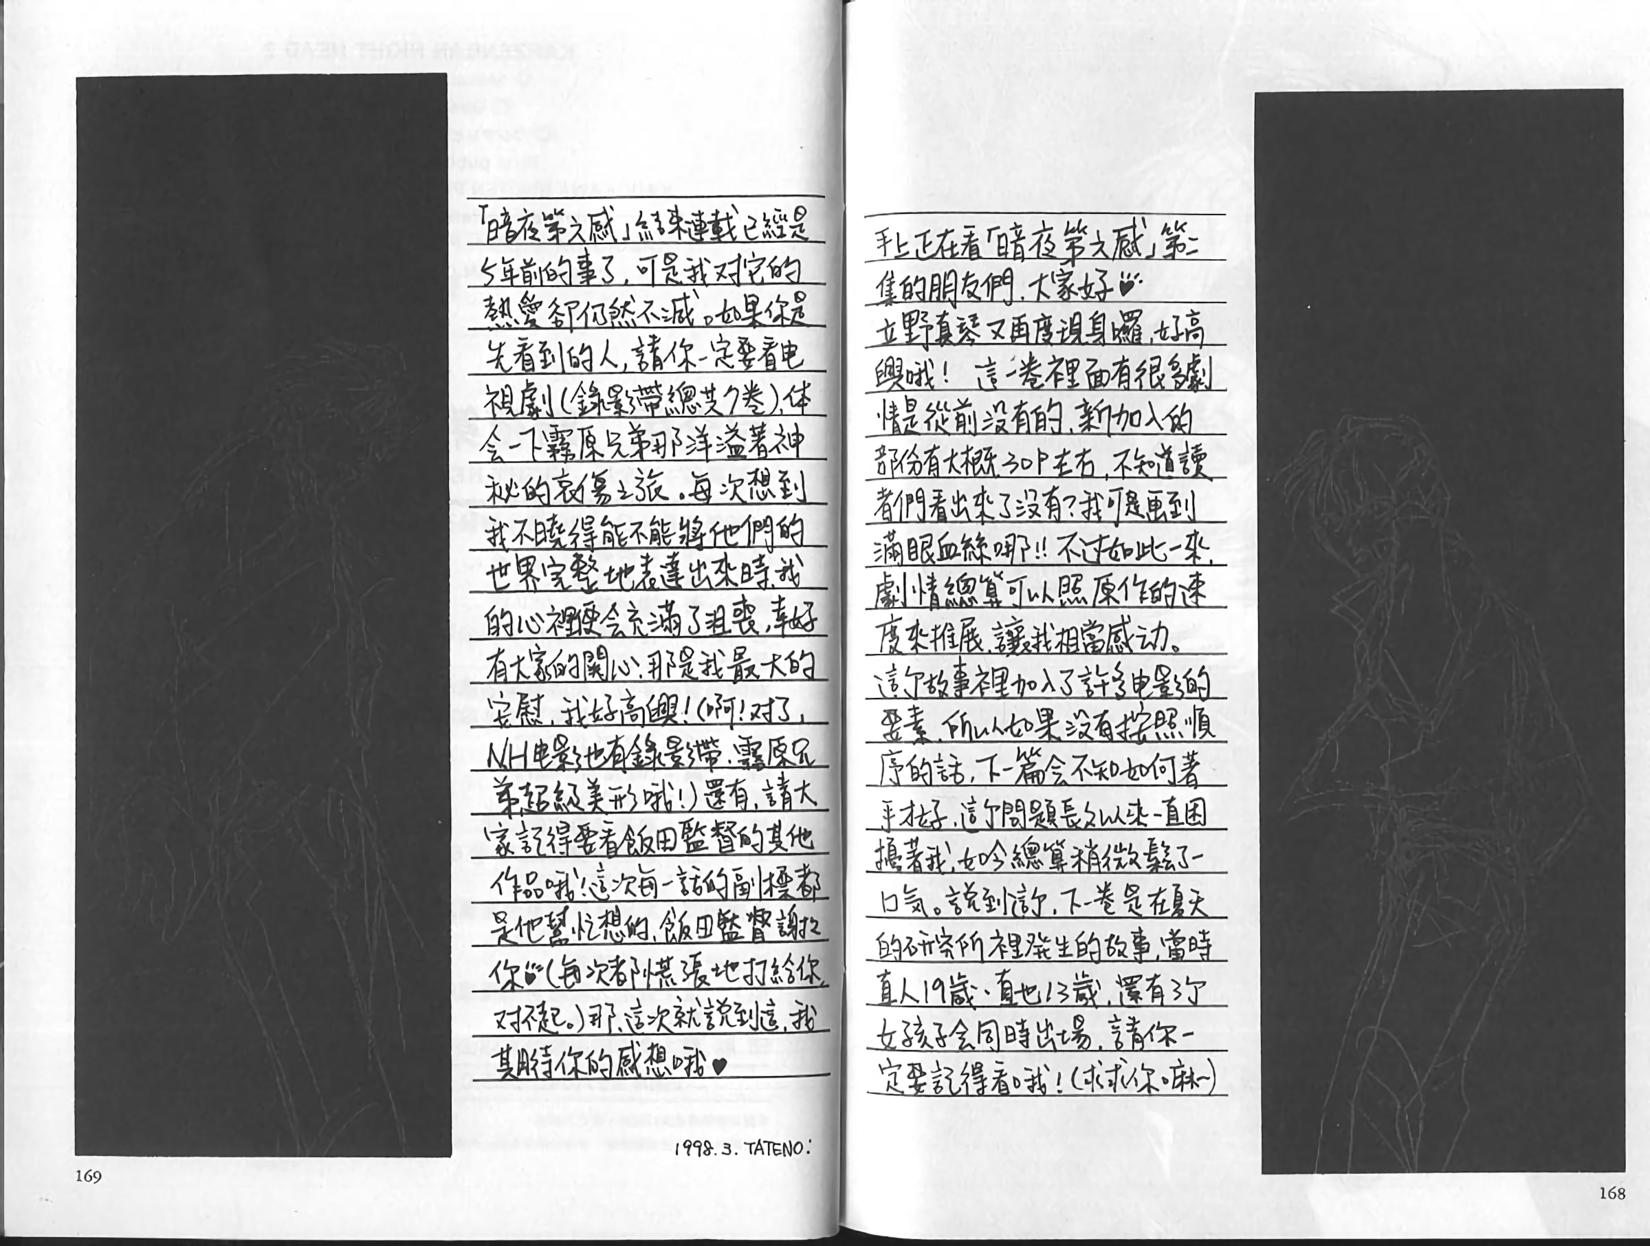 手上正在看「暗夜第六感」第二
集的朋友們、大家好♥
立野真琴又再度現身囉，好高
興哦！這一卷裡面有很多劇
情是從前没有的，新加入的
部份有大概30P左右，不知道讀
者們看出來了没有？我可是画到
滿眼血絲哪!!不过如此一來，
劇情總算可以照原作的速
度來推展，讓我相當感动。
這个故事裡加入了許多电影的
要素，所以如果没有按照順
序的話，下一篇会不知如何著
手才好，這个問題長久以来一直困
擾著我，如今總算稍微鬆了一
口気。說到這，下一卷是在夏天
的研究所裡発生的故事，當時
直人19歲、直也13歲，還有3个
女孩子会同時出場，請你一
定要記得看哦！(求求你嘛~)
168
「暗夜第六感」結束連載已經是
5年前的事了，可是我对它的
熱愛卻仍然不減。如果你是
先看到的人，請你一定要看电
視劇(錄影帶總共7卷)，体
会一下霧原兄弟那洋溢著神
秘的哀傷之旅。每次想到
我不曉得能不能將他們的
世界完整地表達出來時，我
的心裡便会充滿了沮喪，幸好
有大家的関心，那是我最大的
安慰，我好高興！(啊！对了，
NH电影也有錄影帶，霧原兄
弟超級美形哦！)還有，請大
家記得要看飯田監督的其他
作品哦！這次每一話的副標都
是他幫忙想的，飯田監督謝謝
你♥(每次都慌張地打給你，
对不起。)那，這次就說到這，我
期待你的感想哦♥
1998.3. TATENO:
169